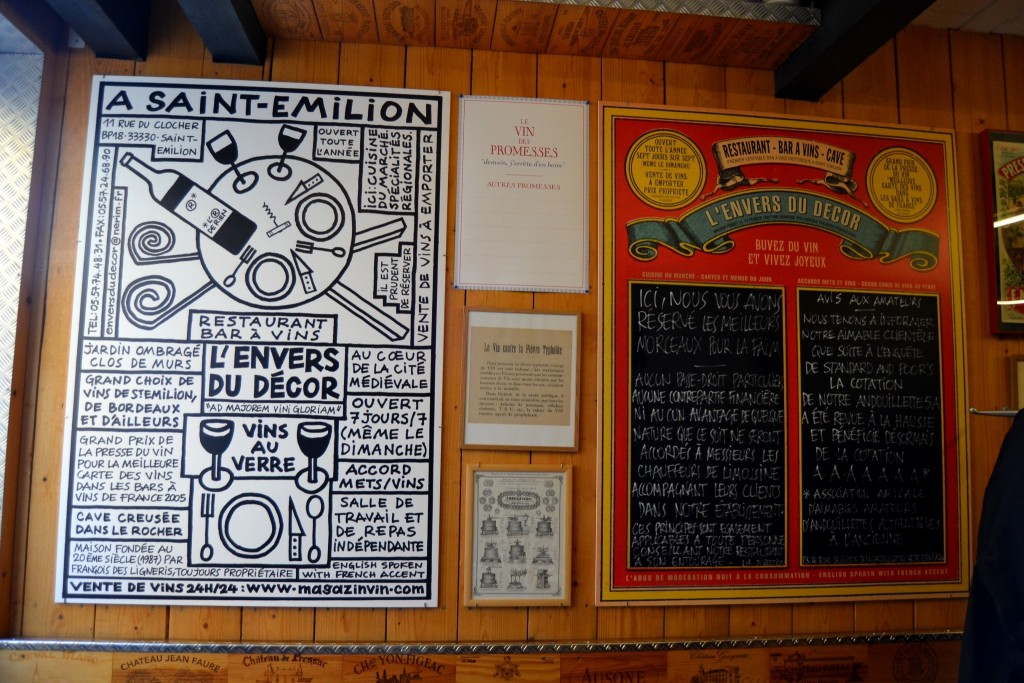 A SAINT-EMILION
11 RUE DU CLOCHER
BP18-33330-SAINT-
EMILION
OUVERT
TOUTE
L'ANNÉE
ICI: CUISINE
DU MARCHÉ.
SPÉCIALITÉS
RÉGIONALES.
VENTE DE VINS À EMPORTER
TEL: 05.57.74.48.31 • FAX: 05.57.24.68.90
enversdudecor@nerim.fr
IL EST
PRUDENT
DE RÉSERVER
RESTAURANT
BAR À VINS
JARDIN OMBRAGÉ
CLOS DE MURS
L'ENVERS
DU DÉCOR
"AD MAJOREM VINI GLORIAM"
AU CŒUR
DE LA CITÉ
MÉDIÉVALE
GRAND CHOIX DE
VINS DE ST EMILION,
DE BORDEAUX
ET D'AILLEURS
OUVERT
7 JOURS/7
(MÊME LE
DIMANCHE)
VINS
AU
VERRE
GRAND PRIX DE
LA PRESSE DU VIN
POUR LA MEILLEURE
CARTE DES VINS
DANS LES BARS À
VINS DE FRANCE 2005
ACCORD
METS/VINS
SALLE DE
TRAVAIL ET
DE REPAS
INDÉPENDANTE
CAVE CREUSÉE
DANS LE ROCHER
MAISON FONDÉE AU
20ÈME SIÈCLE (1987) PAR
FRANÇOIS DES LIGNERIS, TOUJOURS PROPRIÉTAIRE
ENGLISH SPOKEN
WITH FRENCH ACCENT
VENTE DE VINS 24H/24 : WWW.magazinvin.com
LE
VIN
DES
PROMESSES
"demain, j'arrête d'en boire"
AUTRES PROMESSES
Le Vin contre la Fièvre Typhoïde
OUVERT
TOUTE L'ANNÉE
SEPT JOURS SUR SEPT
MÊME LE DIMANCHE
VENTE DE VINS
A EMPORTER
PRIX PROPRIÉTÉ
RESTAURANT - BAR A VINS - CAVE
GRAND PRIX
DE LA PRESSE
DU VIN
MEILLEURE
CARTE DES VINS
DANS
LES BARS À
VINS
DE FRANCE
L'ENVERS DU DECOR
BUVEZ DU VIN
ET VIVEZ JOYEUX
CUISINE DU MARCHÉ - CARTES ET MENUS DU JOUR
ACCORDS METS ET VINS - GRAND CHOIX DE VINS AU VERRE
ICI, NOUS VOUS AVONS
RESERVÉ LES MEILLEURS
MORCEAUX POUR LA FAIM
AUCUN PASSE-DROIT PARTICULIER
AUCUNE CONTREPARTIE FINANCIÈRE
NI AUCUN AVANTAGE DE QUELQUE
NATURE QUE CE SOIT NE SERONT
ACCORDÉS À MESSIEURS LES
CHAUFFEURS DE LIMOUSINE
ACCOMPAGNANT LEURS CLIENTS
DANS NOTRE ÉTABLISSEMENT
CES PRINCIPES SONT ÉGALEMENT
APPLICABLES À TOUTE PERSONNE
CONSEILLANT NOTRE RESTAURANT
À SON ENTOURAGE
AVIS AUX AMATEURS
NOUS TENONS À INFORMER
NOTRE AIMABLE CLIENTÈLE
QUE SUITE À L'ENQUÊTE
DE STANDARD AND POOR'S
LA COTATION
DE NOTRE ANDOUILLETTE
A ÉTÉ REVUE À LA HAUSSE
ET BÉNÉFICIE DÉSORMAIS
DE LA COTATION
A A A A A A *
* ASSOCIATION AMICALE
D'AIMABLES AMATEURS
D'ANDOUILLETTES AUTHENTIQUES
À L'ANCIENNE
L'ABUS DE MODERATION NUIT À LA CONSOMMATION - ENGLISH SPOKEN WITH FRENCH ACCENT
CHEVAL BLANC
CHATEAU JEAN FAURE
Château de Fressac
CHAU YON-FIGEAC
AUSONE